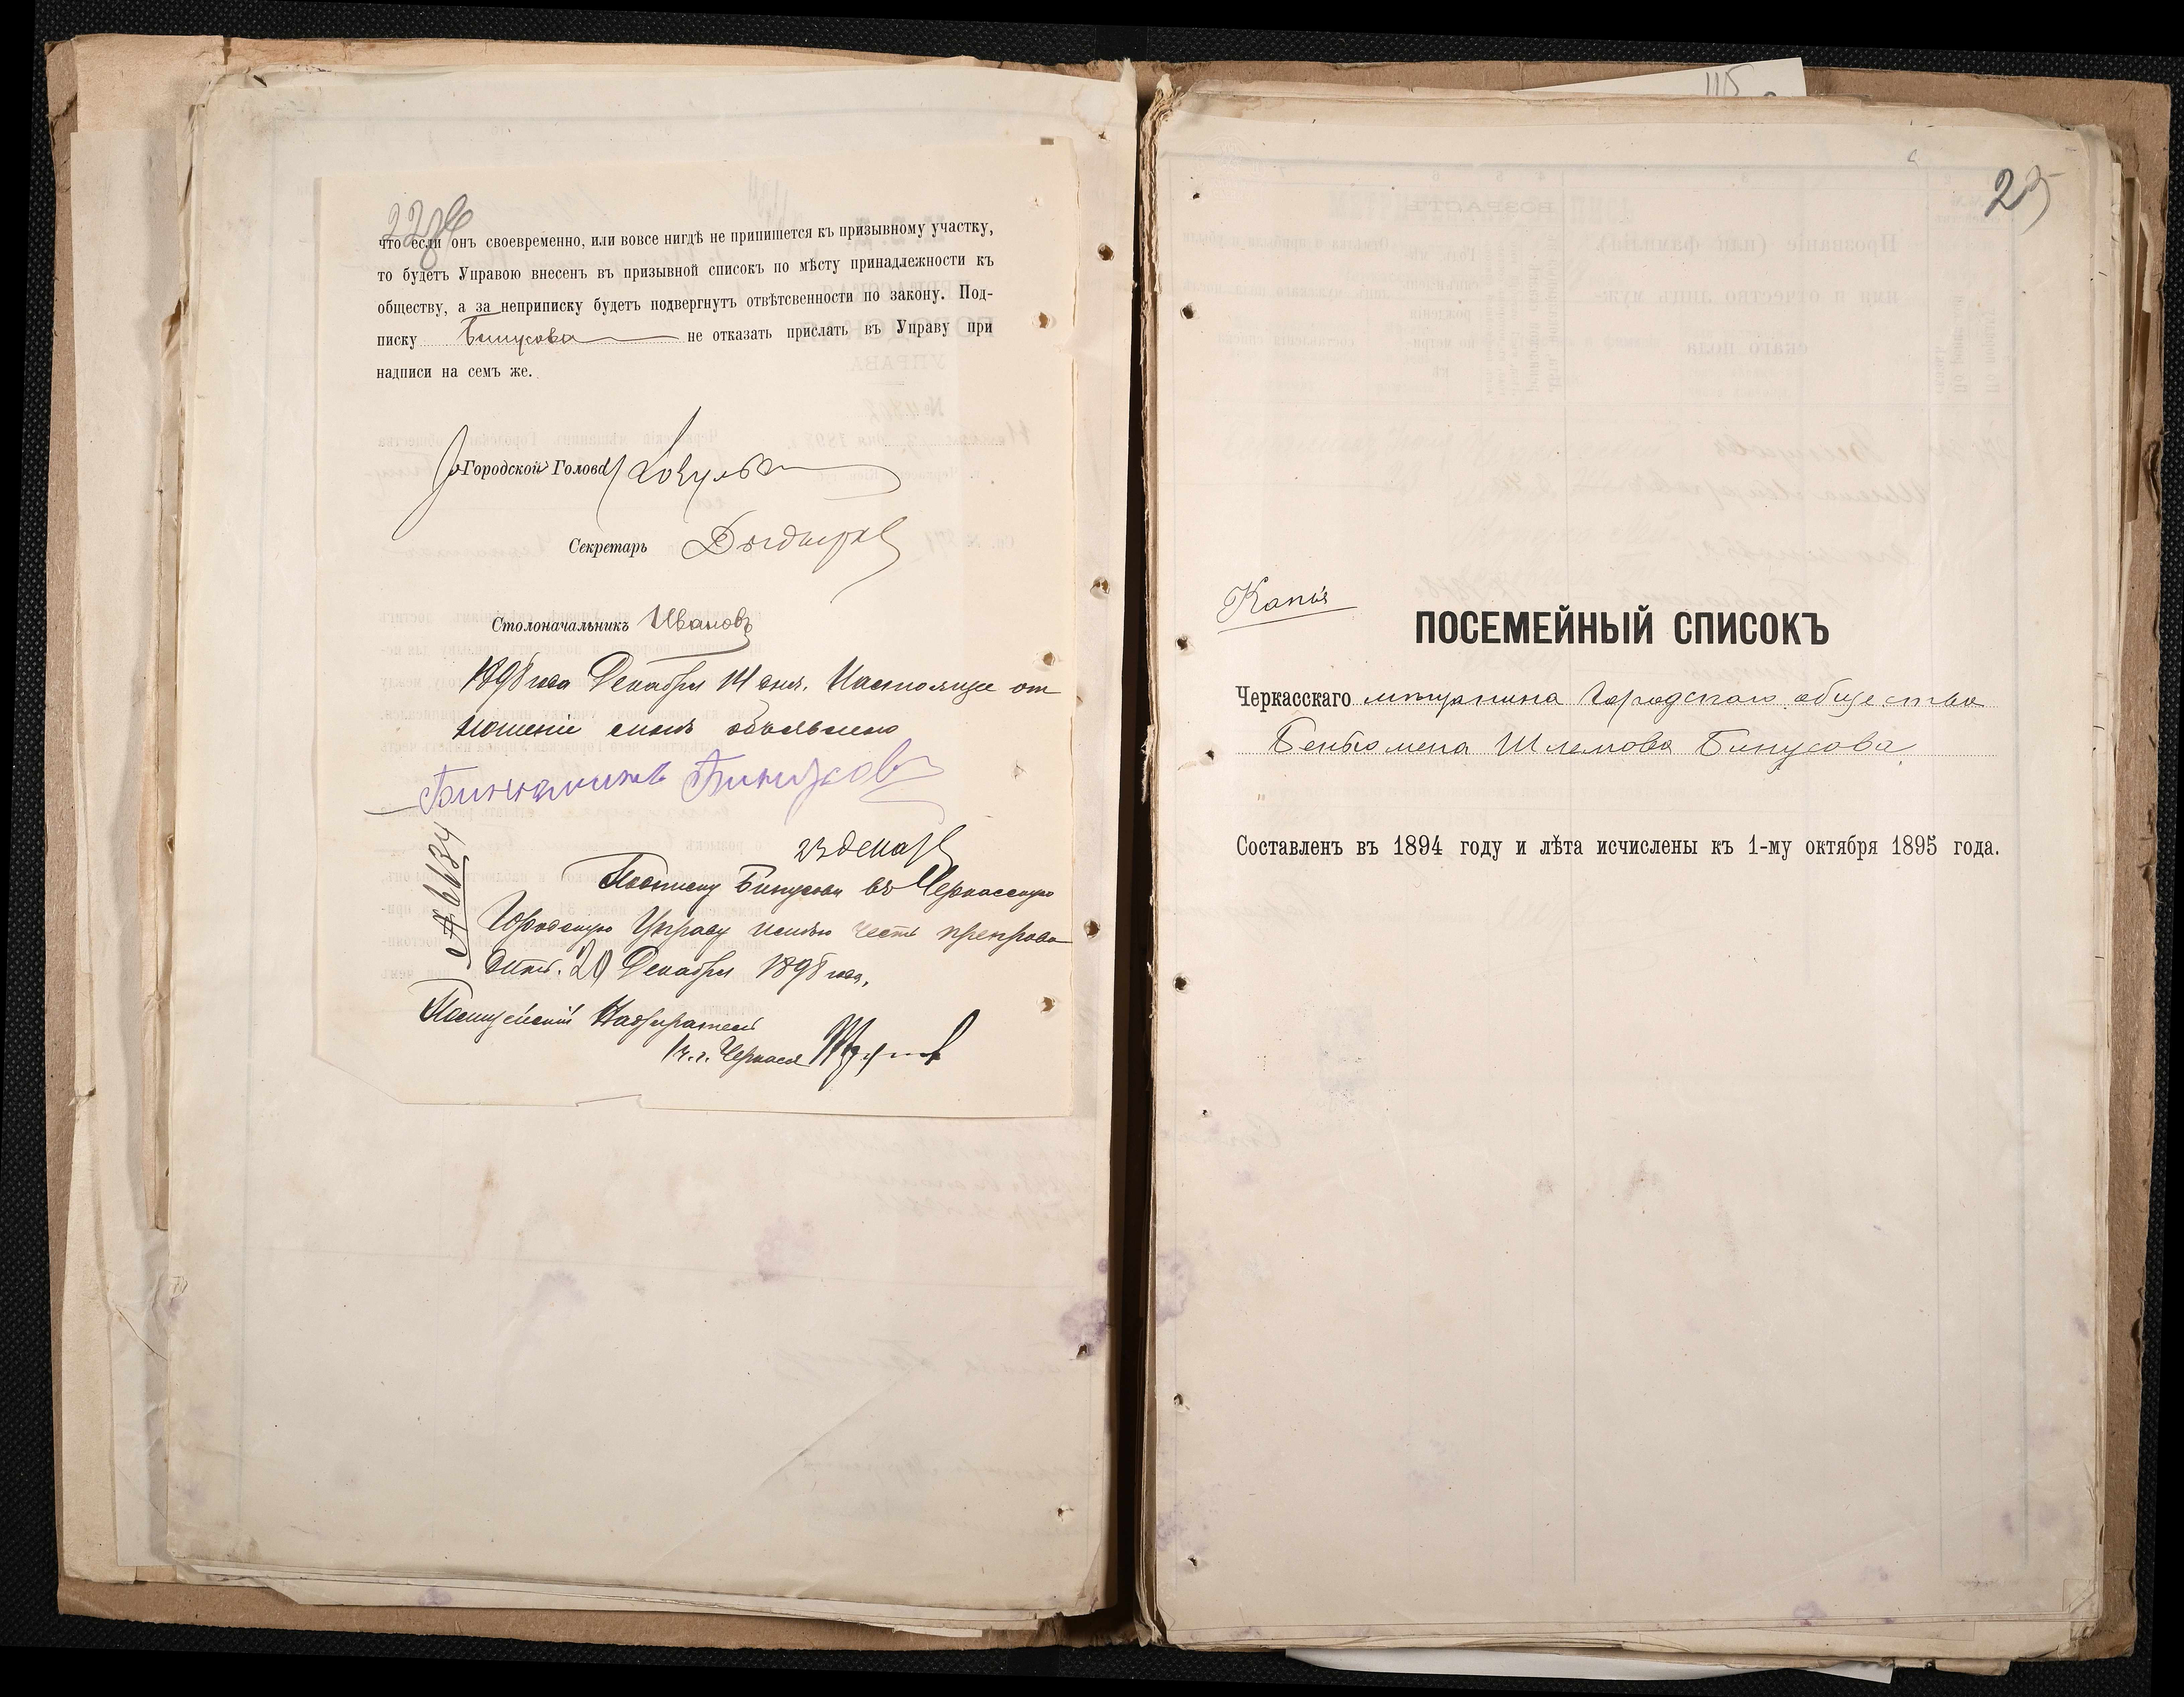 что если онъ своевременно, или вовсе нигдѣ не припишется къ призывному участку,
то будетъ Управою внесенъ въ призывной списокъ по мѣсту принадлежности къ
обществу, а за неприписку будетъ подвергнутъ отвѣтсвенности по закону. Под-
писку Бинусова не отказать прислать въ Управу при
надписи на семъ же.
Городской Голова
Секретарь
Столоначальникъ Ивановъ
1898 года Декабря 14 дня. Настоящее от
ношеніе мнѣ объявлено
Бинусовъ
23 декаб
№ 6634
Подписку Бинусова въ Черкасскую
Городскую Управу имѣю честь препрово
дить. 20 Декабря 1898 года.
Полицейскій Надзиратель
г. Черкасъ
25
Копія
ПОСЕМЕЙНЫЙ СПИСОКЪ
Черкасскаго мѣщанина Городскаго общества
Беньюмена Шлемова Бинусова
Составленъ въ 1894 году и лѣта исчислены къ 1-му октября 1895 года.